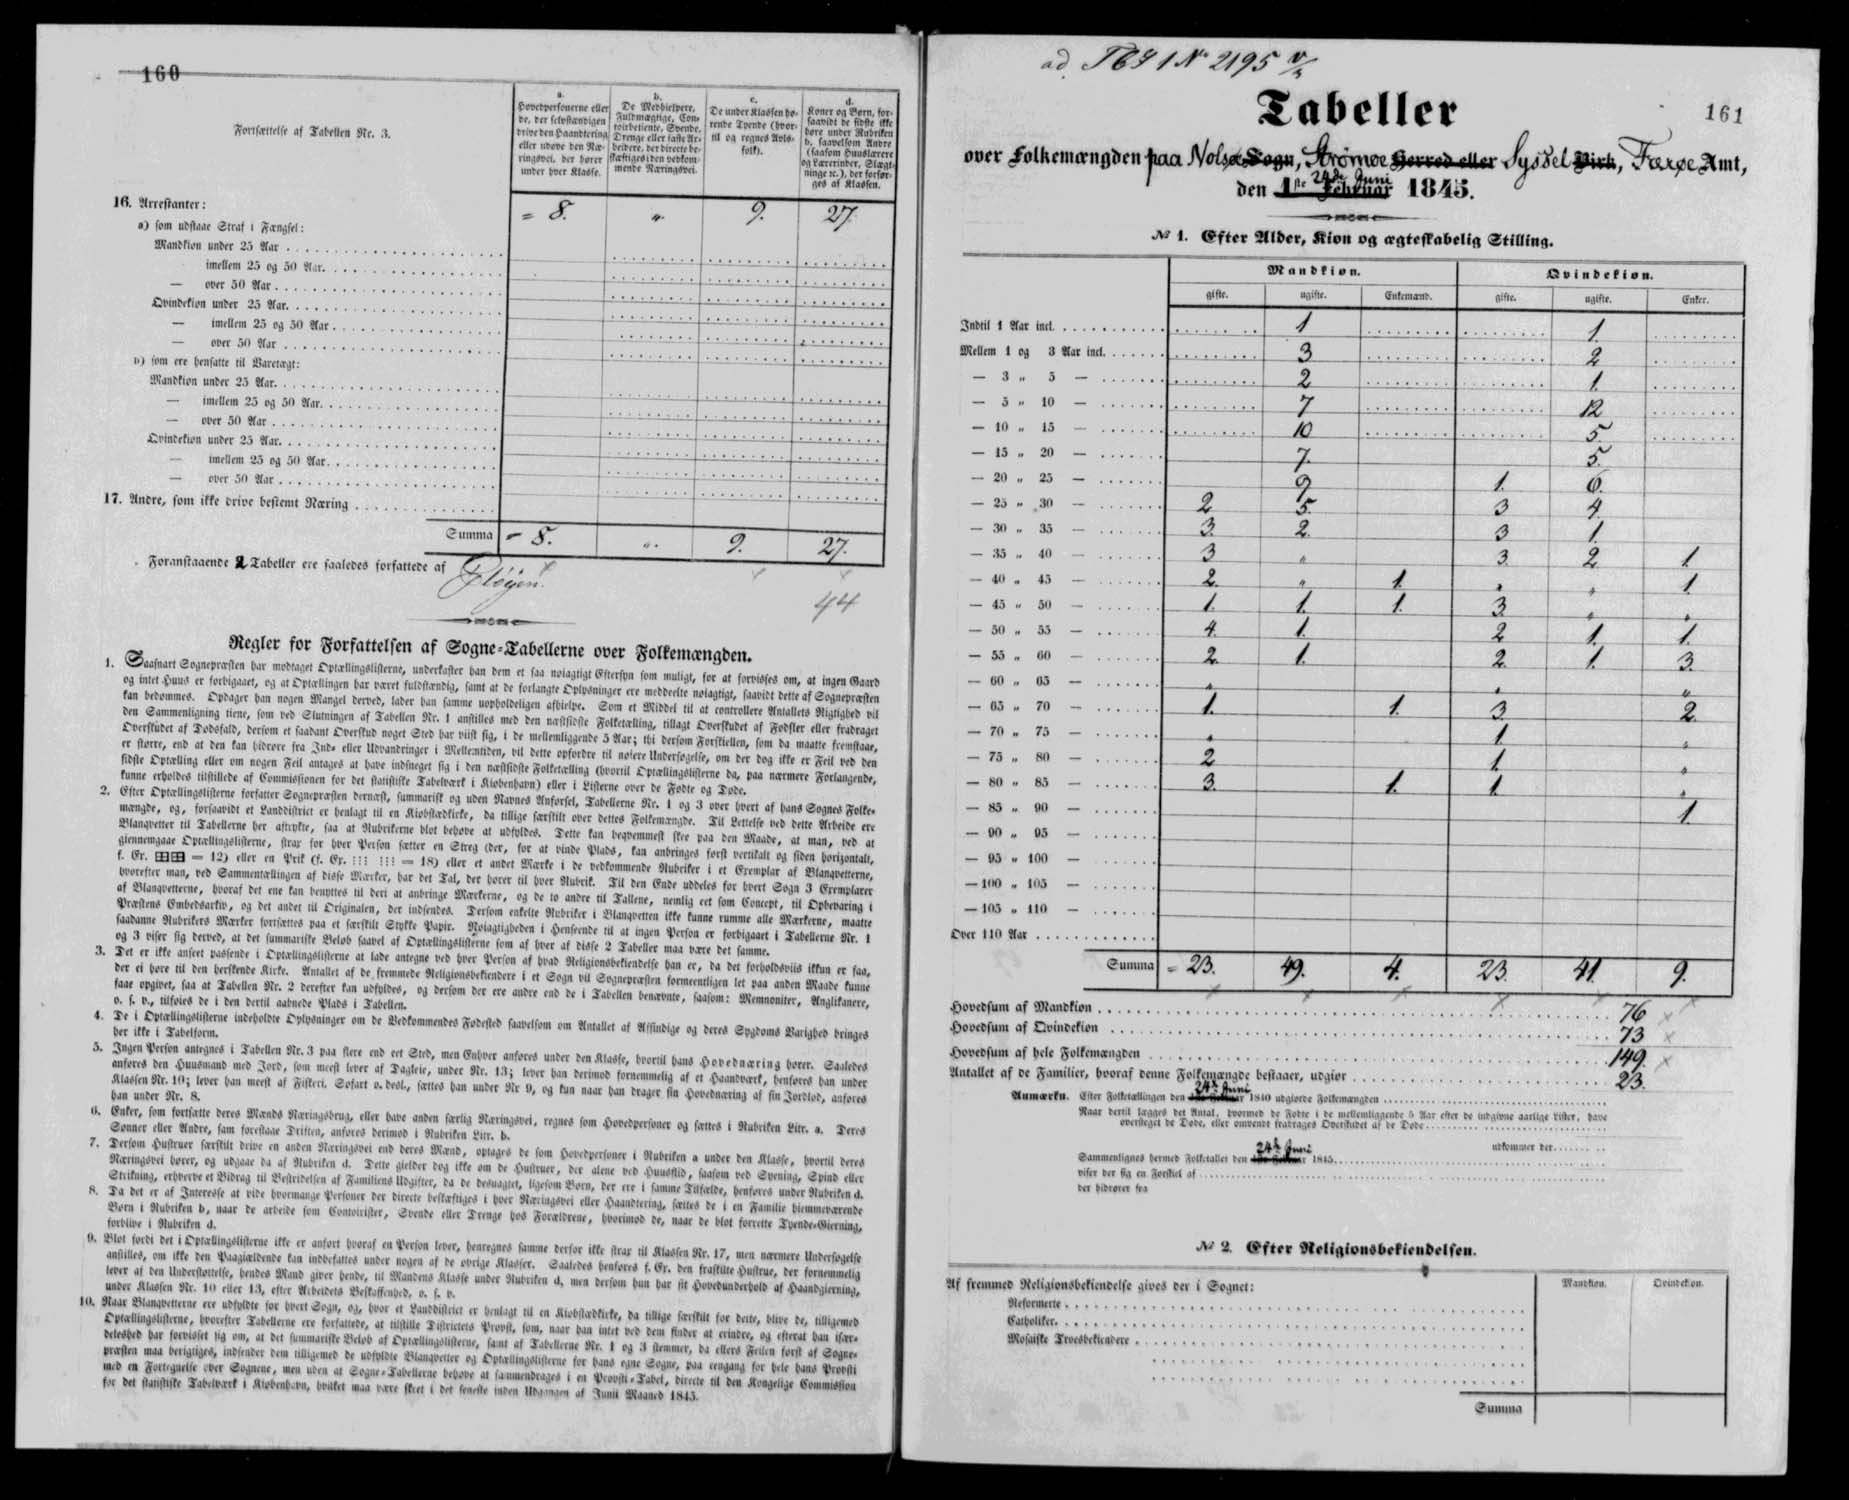 160
Fortsættelse af Tabellen Nr. 3.
a. Hovedpersonerne eller de, der selvstændigen drive den Haandtering eller udøve den Næringsvei, der hører under hver Klasse.
b. De Medhielpere, Fuldmægtige, Contoirbetiente, Svende, Drenge eller faste Arbeidere, der directe beskæftiges i den vedkommende Næringsvei.
c. De under Klassen hørende Tyende (hvortil og regnes Avlsfolk).
d. Koner og Børn, forsaavidt de sidste ikke høre under Rubriken b, saavelsom Andre (saasom Huuslærere og Lærerinder, Slægtninge ꝛc.), der forsørges af Klassen.
= 8. " 9. 27.
16. Arrestanter:
a) som udstaae Straf i Fængsel:
Mandkiøn under 25 Aar
imellem 25 og 50 Aar.
— over 50 Aar
Qvindekiøn under 25 Aar.
— imellem 25 og 50 Aar
— over 50 Aar
b) som ere hensatte til Varetægt:
Mandkiøn under 25 Aar.
— imellem 25 og 50 Aar.
— over 50 Aar
Qvindekiøn under 25 Aar.
— imellem 25 og 50 Aar.
— over 50 Aar
17. Andre, som ikke drive bestemt Næring
Summa = 8. " 9. 27.
Foranstaaende 2 Tabeller ere saaledes forfattede af Pløyen.
44
Regler for Forfattelsen af Sogne-Tabellerne over Folkemængden.
1. Saasnart Sognepræsten har modtaget Optællingslisterne, underkaster han dem et saa nøiagtigt Eftersyn som muligt, for at forvisses om, at ingen Gaard
og intet Huus er forbigaaet, og at Optællingen har været fuldstændig, samt at de forlangte Oplysninger ere meddeelte nøiagtigt, saavidt dette af Sognepræsten
kan bedømmes. Opdager han nogen Mangel derved, lader han samme uopholdeligen afhielpe. Som et Middel til at controllere Antallets Rigtighed vil
den Sammenligning tiene, som ved Slutningen af Tabellen Nr. 1 anstilles med den næstsidste Folketælling, tillagt Overskudet af Fødsler eller fradraget
Overskudet af Dødsfald, dersom et saadant Overskud noget Sted har viist sig, i de mellemliggende 5 Aar; thi dersom Forskiellen, som da maatte fremstaae,
er større, end at den kan hidrøre fra Ind- eller Udvandringer i Mellemtiden, vil dette opfordre til nøiere Undersøgelse, om der dog ikke er Feil ved den
sidste Optælling eller om nogen Feil antages at have indsneget sig i den næstsidste Folketælling (hvortil Optællingslisterne da, paa nærmere Forlangende,
kunne erholdes tilstillede af Commissionen for det statistiske Tabelværk i Kiøbenhavn) eller i Listerne over de Fødte og Døde.
2. Efter Optællingslisterne forfatter Sognepræsten dernæst, summarisk og uden Navnes Anførsel, Tabellerne Nr. 1 og 3 over hvert af hans Sognes Folke-
mængde, og, forsaavidt et Landdistrict er henlagt til en Kiøbstædkirke, da tillige særskilt over dettes Folkemængde. Til Lettelse ved dette Arbeide ere
Blanqvetter til Tabellerne her aftrykte, saa at Rubrikerne blot behøve at udfyldes. Dette kan beqvemmest skee paa den Maade, at man, ved at
giennemgaae Optællingslisterne, strax for hver Person sætter en Streg (der, for at vinde Plads, kan anbringes først vertikalt og siden horizontalt,
f. Ex. = 12) eller en Prik (f. Ex. ⁝⁝⁝ ⁝⁝⁝ = 18) eller et andet Mærke i de vedkommende Rubriker i et Exemplar af Blanqvetterne,
hvorefter man, ved Sammentællingen af disse Mærker, har det Tal, der hører til hver Rubrik. Til den Ende uddeles for hvert Sogn 3 Exemplarer
af Blanqvetterne, hvoraf det ene kan benyttes til deri at anbringe Mærkerne, og de to andre til Tallene, nemlig eet som Concept, til Opbevaring i
Præstens Embedsarkiv, og det andet til Originalen, der indsendes. Dersom enkelte Rubriker i Blanqvetten ikke kunne rumme alle Mærkerne, maatte
saadanne Rubrikers Mærker fortsættes paa et særskilt Stykke Papir. Nøiagtigheden i Henseende til at ingen Person er forbigaaet i Tabellerne Nr. 1
og 3 viser sig derved, at det summariske Beløb saavel af Optællingslisterne som af hver af disse 2 Tabeller maa være det samme.
3. Det er ikke anseet passende i Optællingslisterne at lade antegne ved hver Person af hvad Religionsbekiendelse han er, da det forholdsviis ikkun er faa,
der ei høre til den herskende Kirke. Antallet af de fremmede Religionsbekiendere i et Sogn vil Sognepræsten formeentligen let paa anden Maade kunne
faae opgivet, saa at Tabellen Nr. 2 derefter kan udfyldes, og dersom der ere andre end de i Tabellen benævnte, saasom: Memnoniter, Anglikanere,
o. s. v., tilføies de i den dertil aabnede Plads i Tabellen.
4. De i Optællingslisterne indeholdte Oplysninger om de Vedkommendes Fødested saavelsom om Antallet af Afsindige og deres Sygdoms Varighed bringes
her ikke i Tabelform.
5. Ingen Person antegnes i Tabellen Nr. 3 paa flere end eet Sted, men Enhver anføres under den Klasse, hvortil hans Hovednæring hører. Saaledes
anføres den Huusmand med Jord, som meest lever af Dagleie, under Nr. 13; lever han derimod fornemmelig af et Haandværk, henføres han under
Klassen Nr. 10; lever han meest af Fiskeri, Søfart o. desl., sættes han under Nr 9, og kun naar han drager sin Hovednæring af sin Jordlod, anføres
han under Nr. 8.
6. Enker, som fortsætte deres Mænds Næringsbrug, eller have anden særlig Næringsvei, regnes som Hovedpersoner og sættes i Rubriken Litr. a. Deres
Sønner eller Andre, sam forestaae Driften, anføres derimod i Rubriken Litr. b.
7. Dersom Hustruer særskilt drive en anden Næringsvei end deres Mænd, optages de som Hovedpersoner i Rubriken a under den Klasse, hvortil deres
Næringsvei hører, og udgaae da af Rubriken d. Dette gielder dog ikke om de Hustruer, der alene ved Huusflid, saasom ved Syening, Spind eller
Strikning, erhverve et Bidrag til Bestridelsen af Familiens Udgifter, da de desuagtet, ligesom Børn, der ere i samme Tilfælde, henføres under Rubriken d.
8. Da det er af Interesse at vide hvormange Personer der directe beskæftiges i hver Næringsvei eller Haandtering, sættes de i en Familie hiemmeværende
Børn i Rubriken b, naar de arbeide som Contoirister, Svende eller Drenge hos Forældrene, hvorimod de, naar de blot forrette Tyende-Gierning,
forblive i Rubriken d.
9. Blot fordi det i Optællingslisterne ikke er anført hvoraf en Person lever, henregnes samme derfor ikke strax til Klassen Nr. 17, men nærmere Undersøgelse
anstilles, om ikke den Paagiældende kan indbefattes under nogen af de øvrige Klasser. Saaledes henføres f. Ex. den fraskilte Hustrue, der fornemmelig
lever af den Understøttelse, hendes Mand giver hende, til Mandens Klasse under Rubriken d, men dersom hun har sit Hovedunderhold af Haandgierning,
under Klassen Nr. 10 eller 13, efter Arbeidets Beskaffenhed, o. s. v.
10. Naar Blanqvetterne ere udfyldte for hvert Sogn, og, hvor et Landdistrict er henlagt til en Kiøbstædkirke, da tillige særskilt for dette, blive de, tilligemed
Optællingslisterne, hvorefter Tabellerne ere forfattede, at tilstille Districtets Provst, som, naar han intet ved dem finder at erindre, og efterat han især-
deleshed har forvisset sig om, at det summariske Beløb af Optællingslisterne, samt af Tabellerne Nr. 1 og 3 stemmer, da ellers Feilen først af Sogne-
præsten maa berigtiges, indsender dem tilligemed de udfyldte Blanqvetter og Optællingslisterne for hans egne Sogne, paa eengang for hele hans Provsti
med en Fortegnelse over Sognene, men uden at Sogne-Tabellerne behøve at sammendrages i en Provsti-Tabel, directe til den Kongelige Commission
for det statistiske Tabelværk i Kiøbenhavn, hvilket maa være skeet i det seneste inden Udgangen af Junii Maaned 1845.
ad. No 2195
Tabeller
161
over Folkemængden paa Nolsø Sogn, Strømøe Herred eller Syssel Birk, Færøe Amt,
24de Juni
den 1ste Februar 1845.
No 1. Efter Alder, Kiøn og ægteskabelig Stilling.
Mandkiøn. Qvindekiøn.
gifte. ugifte. Enkemænd. gifte. ugifte. Enker.
Indtil 1 Aar incl. 1 1.
Mellem 1 og 3 Aar incl. 3 2
— 3 " 5 — 2 1.
— 5 " 10 — 7 12
— 10 " 15 — 10 5.
— 15 " 20 — 7. 5.
— 20 " 25 — 9 1. 6.
— 25 " 30 — 2 5. 3 4.
— 30 " 35 — 3. 2. 3 1.
— 35 " 40 — 3 " 3. 2. 1.
— 40 " 45 — 2. " 1. " " 1
— 45 " 50 — 1. 1. 1. 3. " "
— 50 " 55 — 4. 1. 2 1. 1.
— 55 " 60 — 2. 1. 2. 1. 3.
— 60 " 65 — " " "
— 65 " 70 — 1. 1. 3. 2.
— 70 " 75 — " 1. "
— 75 " 80 — 2 1. "
— 80 " 85 — 3. 1. 1. "
— 85 " 90 — 1.
— 90 " 95 —
— 95 " 100 —
— 100 " 105 —
— 105 " 110 —
Over 110 Aar
Summa = 23. 49. 4. 23. 41. 9.
Hovedsum af Mandkiøn 76
Hovedsum af Qvindekiøn 73
Hovedsum af hele Folkemængden 149.
Antallet af de Familier, hvoraf denne Folkemængde bestaaer, udgiør 23.
24de Juni
Anmærkn. Efter Folketællingen den 1ste Februar 1840 udgiorde Folkemængden
Naar dertil lægges det Antal, hvormed de Fødte i de mellemliggende 5 Aar efter de indgivne aarlige Lister, have
oversteget de Døde, eller omvendt fradrages Overskudet af de Døde
udkommer der
24de Juni
Sammenlignes hermed Folketallet den 1ste Februar 1845
viser der sig en Forskiel af
der hidrører fra
No 2. Efter Religionsbekiendelsen.
Af fremmed Religionsbekiendelse gives der i Sognet: Mandkiøn. Qvindekiøn.
Reformerte
Catholiker.
Mosaiske Troesbekiendere
Summa